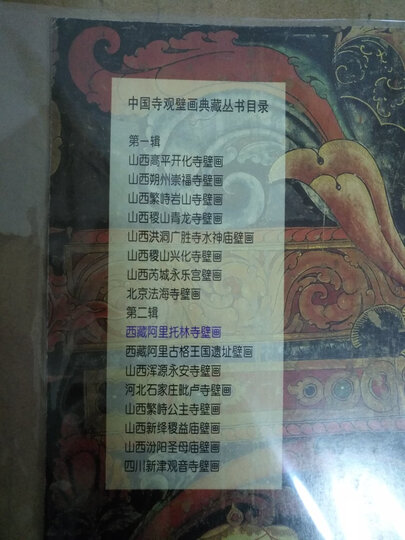 中国寺观壁画典藏丛书目录
第一辑
山西高平开化寺壁画
山西朔州崇福寺壁画
山西繁峙岩山寺壁画
山西稷山青龙寺壁画
山西洪洞广胜寺水神庙壁画
山西稷山兴化寺壁画
山西芮城永乐宫壁画
北京法海寺壁画
第二辑
西藏阿里托林寺壁画
西藏阿里古格王国遗址壁画
山西浑源永安寺壁画
河北石家庄毗卢寺壁画
山西繁峙公主寺壁画
山西新绛稷益庙壁画
山西汾阳圣母庙壁画
四川新津观音寺壁画